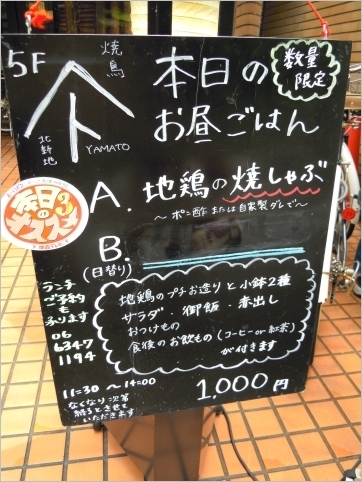 5F
焼鳥
北新地
YAMATO
本日の
お昼ごはん
数量
限定
A. 地鶏の焼しゃぶ
〜ポン酢または自家製ダレで〜
B.
(日替り)
地鶏のプチお造りと小鉢2種
サラダ・御飯・赤出し
おつけもの
食後のお飲もの(コーヒーor紅茶)
が付きます
ランチ
ご予約
も
承ります
06
6347
1194
11:30〜14:00
なくなり次第
終らせて
いただきます
1,000円